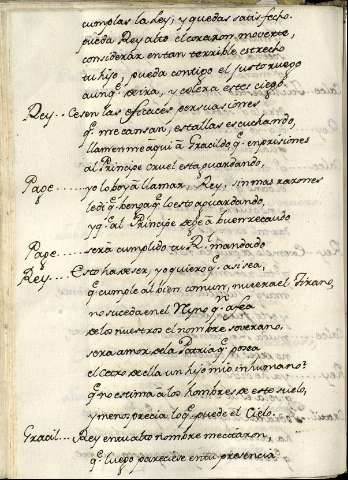 cumplas la Ley, y quedas satisfecho.
pueda Rey alto el coraçon moverte,
considerar en tan terrible estrecho
tu hijo, pueda contigo el justo ruego
aunq.e de ira, y colera estes ciego.
Rey... Cesen las eficaces persuasiones
q.e me cansan, estallas escuchando,
llamenme aqui à Gracildo q.e en prisiones
al Principe cruel esta guardando,
Page..... yo lo boy à llamar, Rey, sin mas razones
ledi q.e benga q.e lo estoy aguardando,
y q.e al Principe dege à buen recaudo
Page..... sera cumplido tu R.l mandado
Rey... Esto ha de ser, y o quiero q.e asi sea,
q.e cumple al bien comun, muera el Tirano,
no suceda en el Reyno q.n afea
de los nuestros el nombre soverano,
sera amor de la Patria q.e posea
el cetro de ella un hijo mio inhumano?
q.e no estima à los hombres de este suelo,
y menos precia lo q.e puede el Cielo.
Gracil... Rey en tu alto nombre me citaron,
q.e luego pareciese en tu presencia